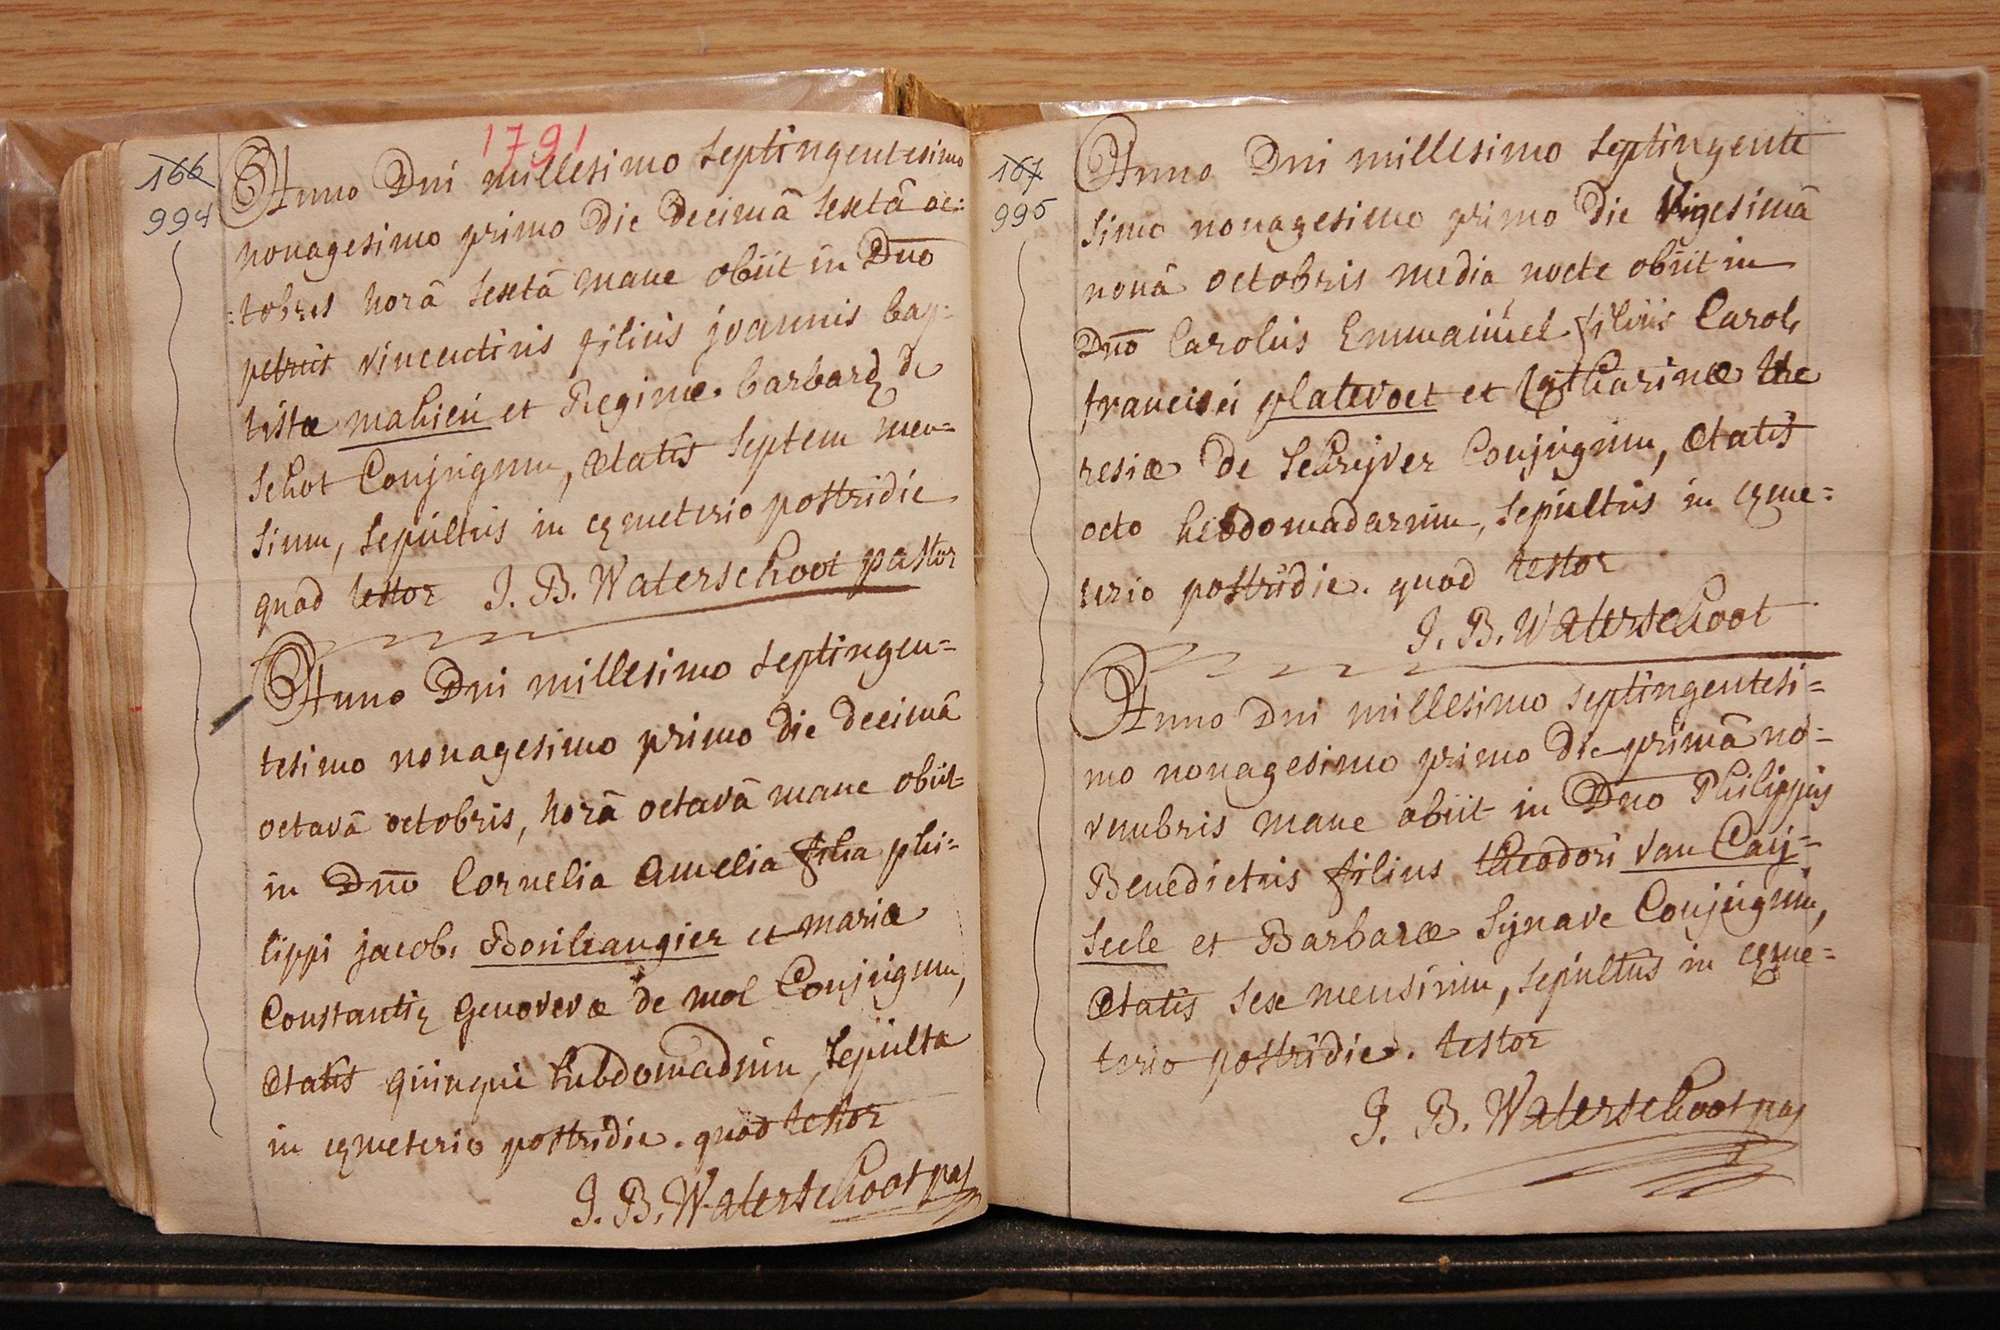 1791
166
994
Anno Dni millesimo septingentesimo
nonagesimo primo die decimâ sextâ oc:
:tobris horâ sextâ mane obiit in Dno
petrus vincentius filius joannis bap:
tistæ mahieu et Reginæ barbaræ de
schot Conjugum, ætatis septem men=
sium, sepultus in cÿmeterio postridie
quod testor J. B. Waterschoot pastor
Anno Dni millesimo septingen=
tesimo nonagesimo primo die decimâ
octavâ octobris, horâ octavâ mane obiit
in Dno Cornelia Amelia filia phi=
lippi jacobi Bonheaugier et mariæ
Constantiæ Genovevæ de mol Conjugum,
ætatis quinque hebdomadum, sepulta
in cymeterio postridie. quod testor
J. B. Waterschoot pas
167
995
Anno Dni millesimo septingente
simo nonagesimo primo die Vigesimâ
nonâ octobris media nocte obiit in
Dno Carolus Emmanuel filius Caroli
francisci platevoet et Catharinæ the
resiæ de schrijver Conjugum, ætatis
octo hebdomadarum, sepultus in cyme=
terio postridie. quod testor
J. B. Waterschoot
Anno Dni millesimo septingentesi=
mo nonagesimo primo die primâ no=
vembris mane obiit in Dno Philippus
Benedictus filius theodori van Caij=
seele et Barbaræ Synave Conjugum,
ætatis sex mensium, sepultus in cyme=
terio postridie. testor
J. B. Waterschoot pas